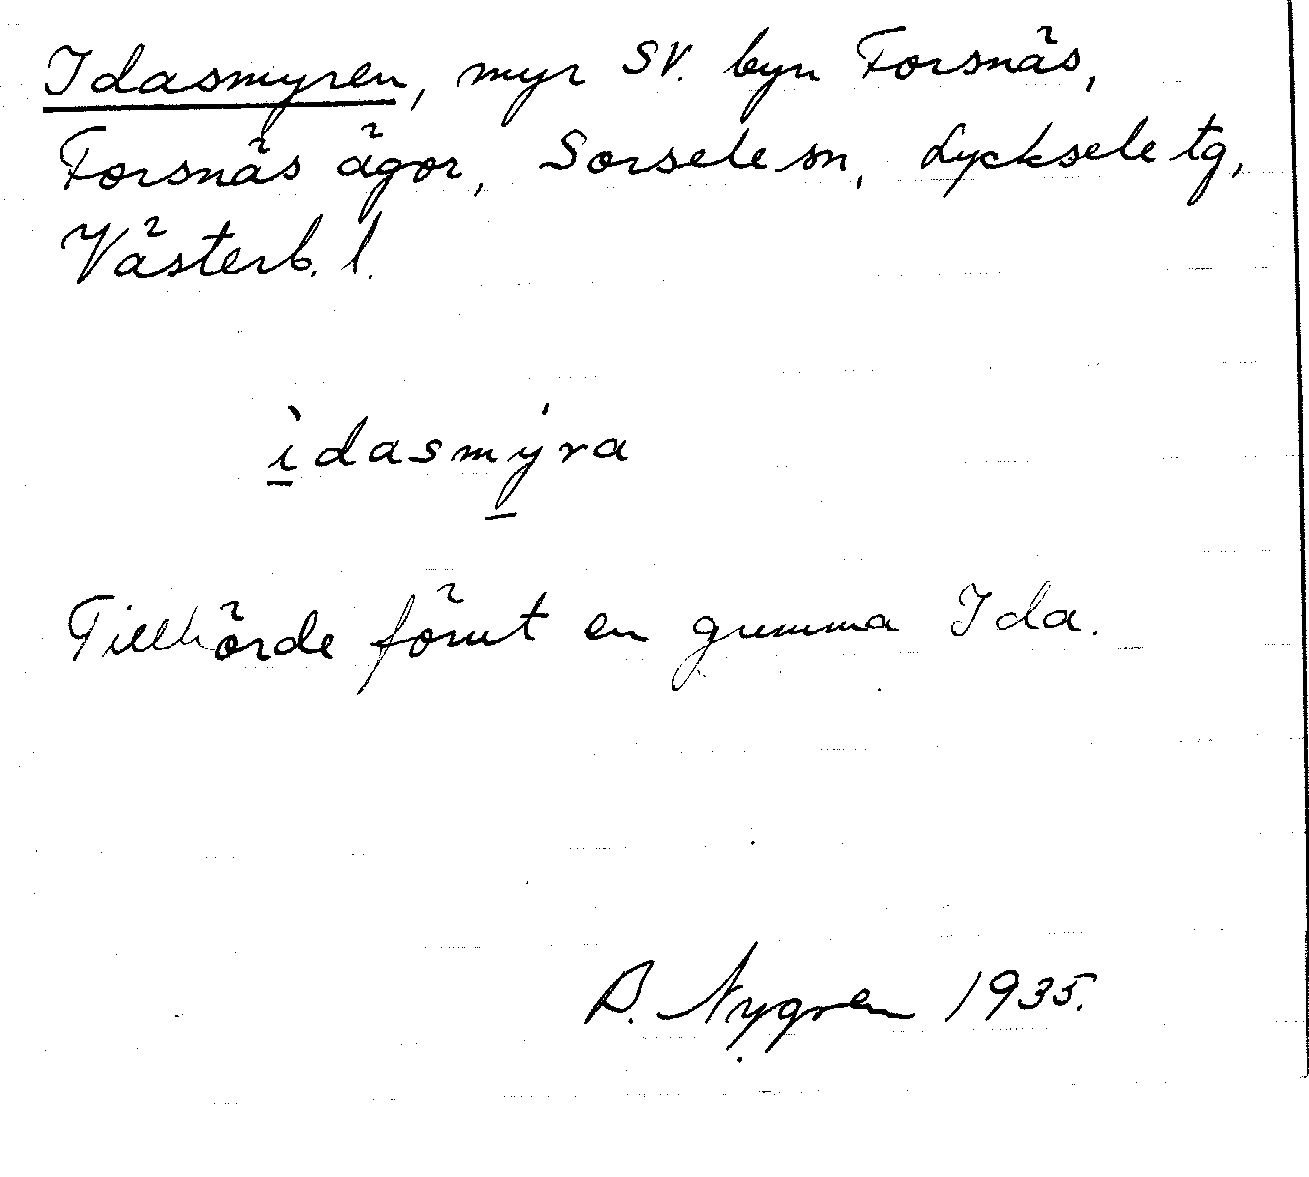 Idasmyren, myr SV. byn Forsnäs,
Forsnäs ägor, Sorsele sn, Lycksele tg,
Västerb. l.
ìdasmýra
Tillhörde förut en gumma Ida.
B. Nygren 1935.